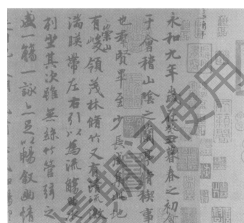 永和九年歲在癸丑暮春之初
于會稽山陰之蘭亭脩稧事
也羣賢畢至少長咸集此地
有崇山峻領茂林脩竹又有清流激
湍暎帶左右引以為流觴曲
列坐其次雖無絲竹管弦之
盛一觴一詠亦足以暢敘幽情
試使用